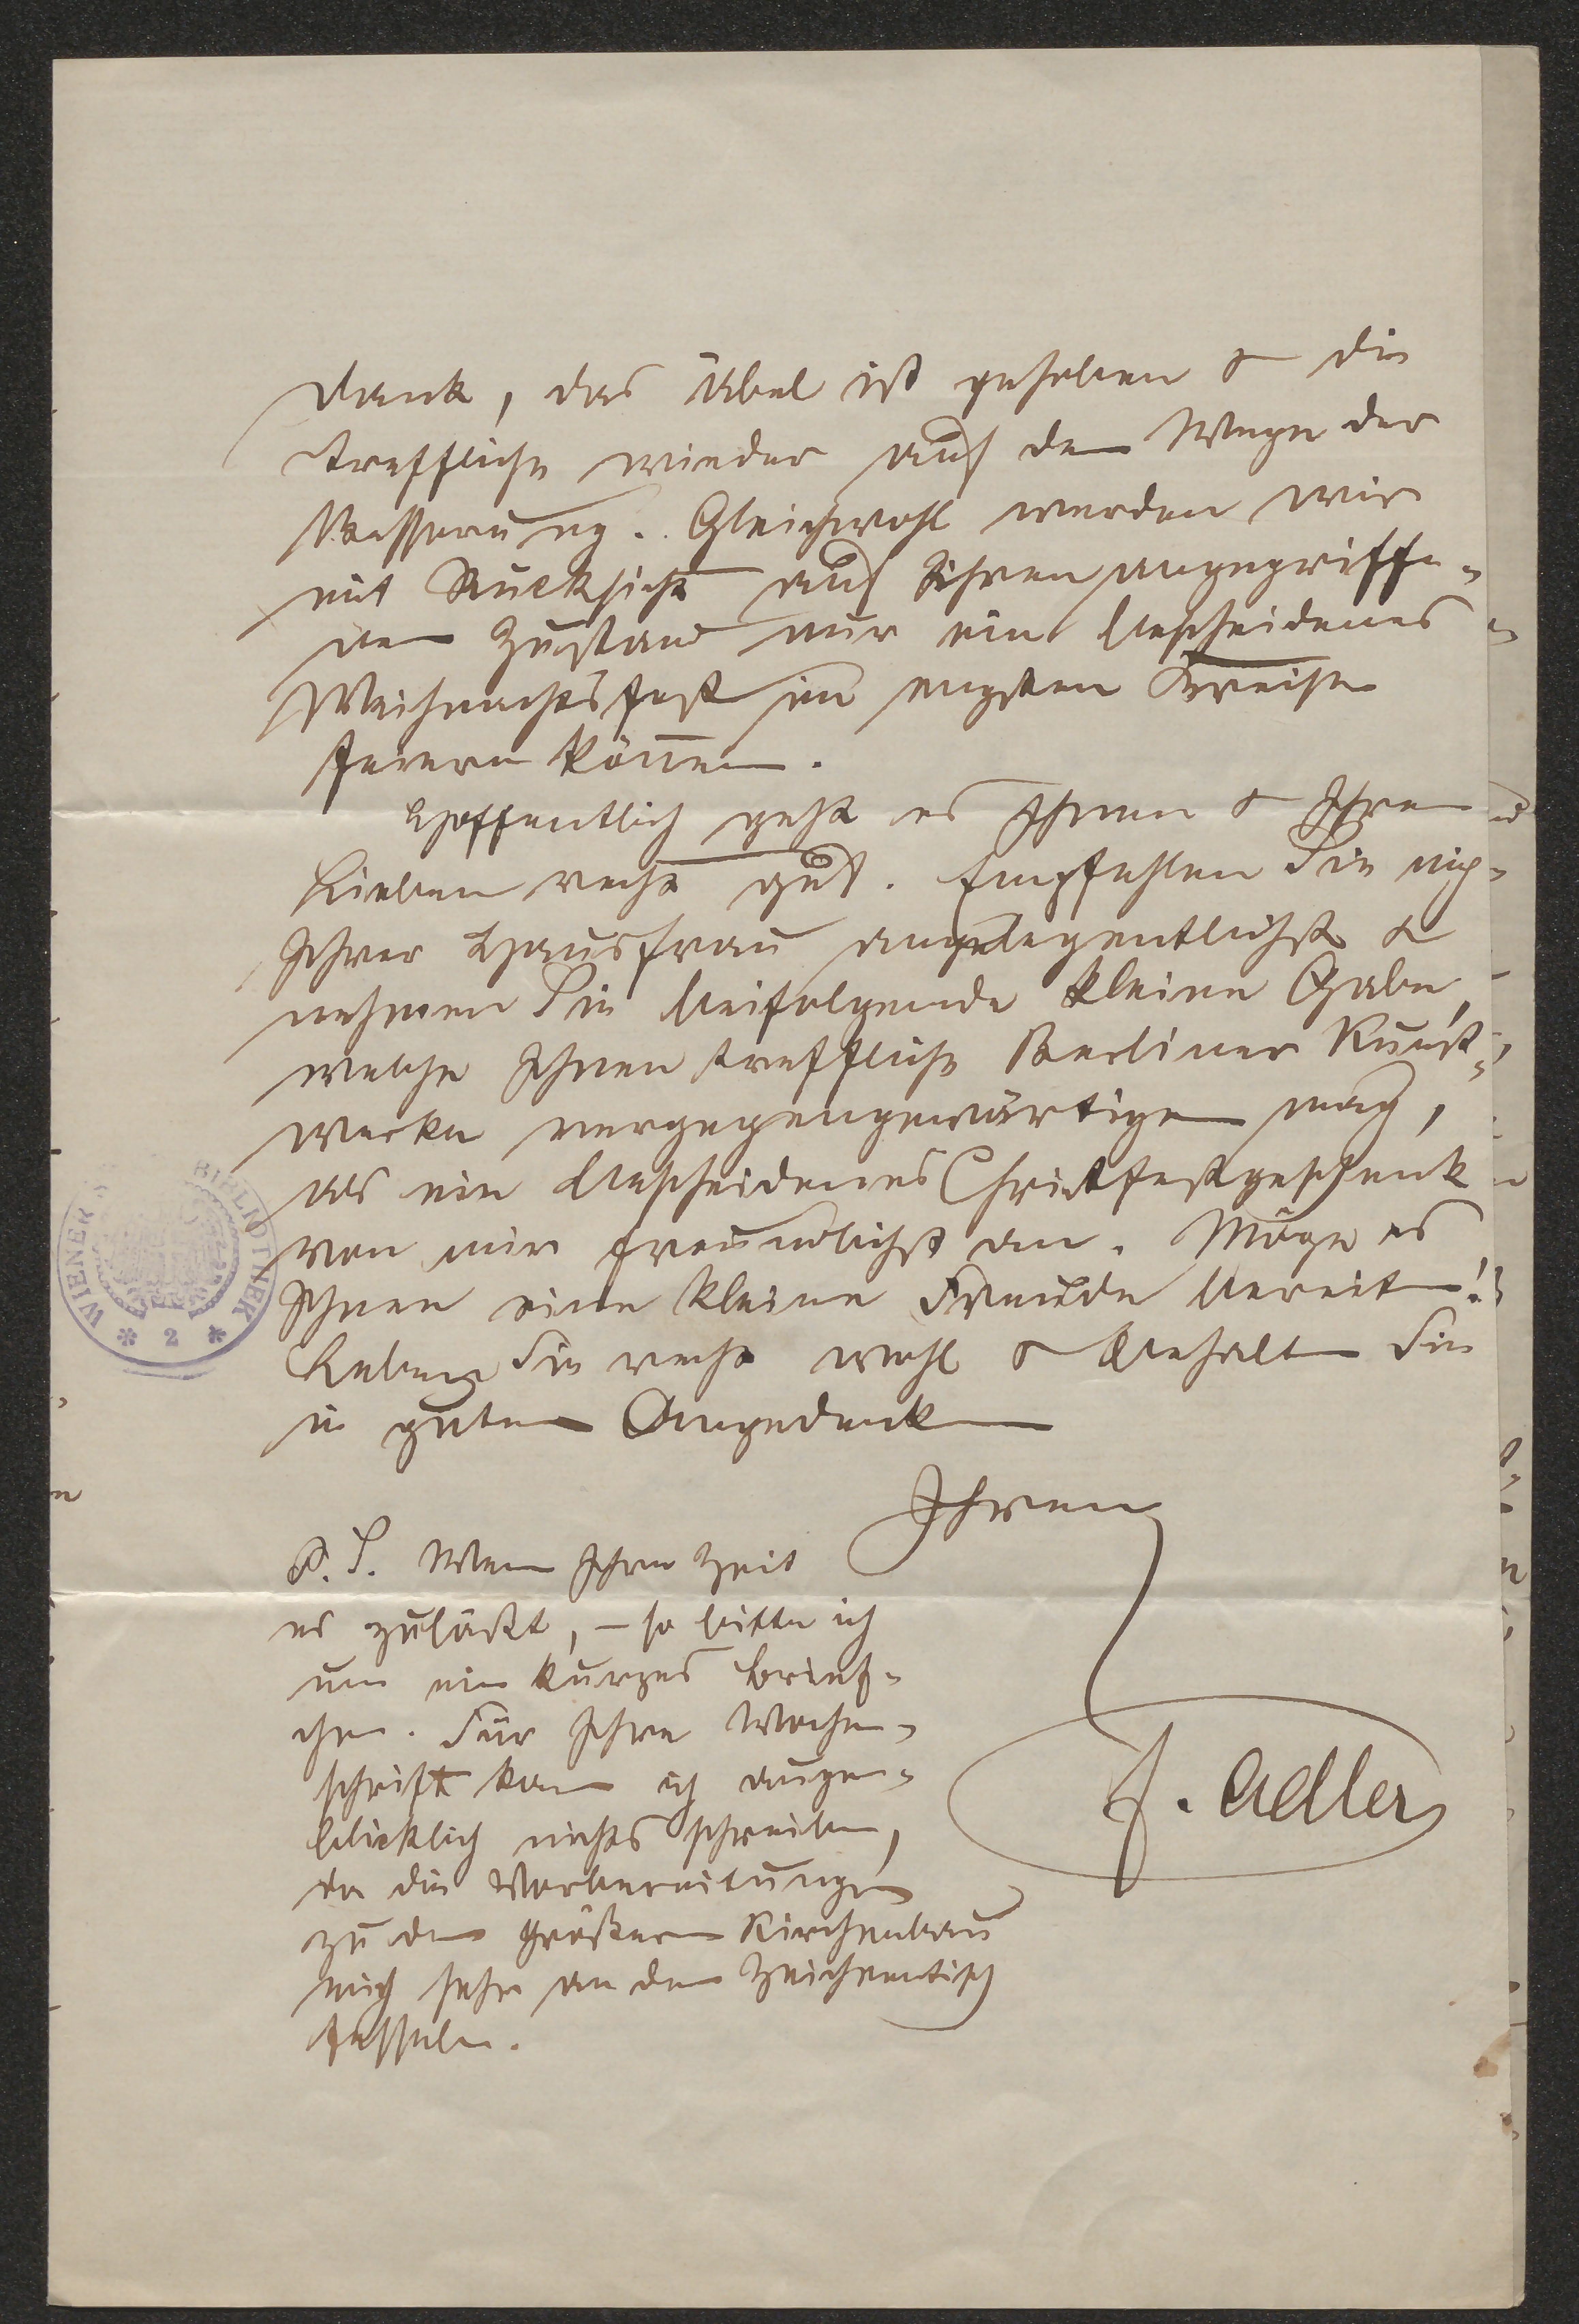 Dank, das Übel ist gehoben & die
treffliche wieder auf dem Wege der
Besserung. Gleichwohl werden wir
mit Rücksicht auf ihren angegriffe-
nen Zustand nur ein bescheidenes
Weihnachtsfest im engsten Kreise
feiern können.
Hoffentlich geht es Ihnen & Ihren
Lieben recht gut. Empfehlen Sie mich
Ihrer Hausfrau angelegentlichst &
nehmen Sie beifolgende kleine Gabe,
welche Ihnen treffliche Berliner Kunst-
werke vergegengewärtigen mag,
als ein bescheidenes Christfestgeschenk
von mir freundlichst an. Möge es
Ihnen eine kleine Freude bereiten!
Leben Sie recht wohl & behalten Sie
in gutem Angedenken
Ihren
F. Adler
P. S. Wenn Ihre Zeit
es zuläßt, – so bitte ich
um ein kurzes Brief-
chen. Für Ihre Wochen-
schrift kann ich augen-
blicklich nichts schreiben,
da die Vorbereitungen
zu dem größeren Kirchenbau
mich sehr an den Zeichentisch
fesseln.
WIENER BIBLIOTHEK
* 2 *